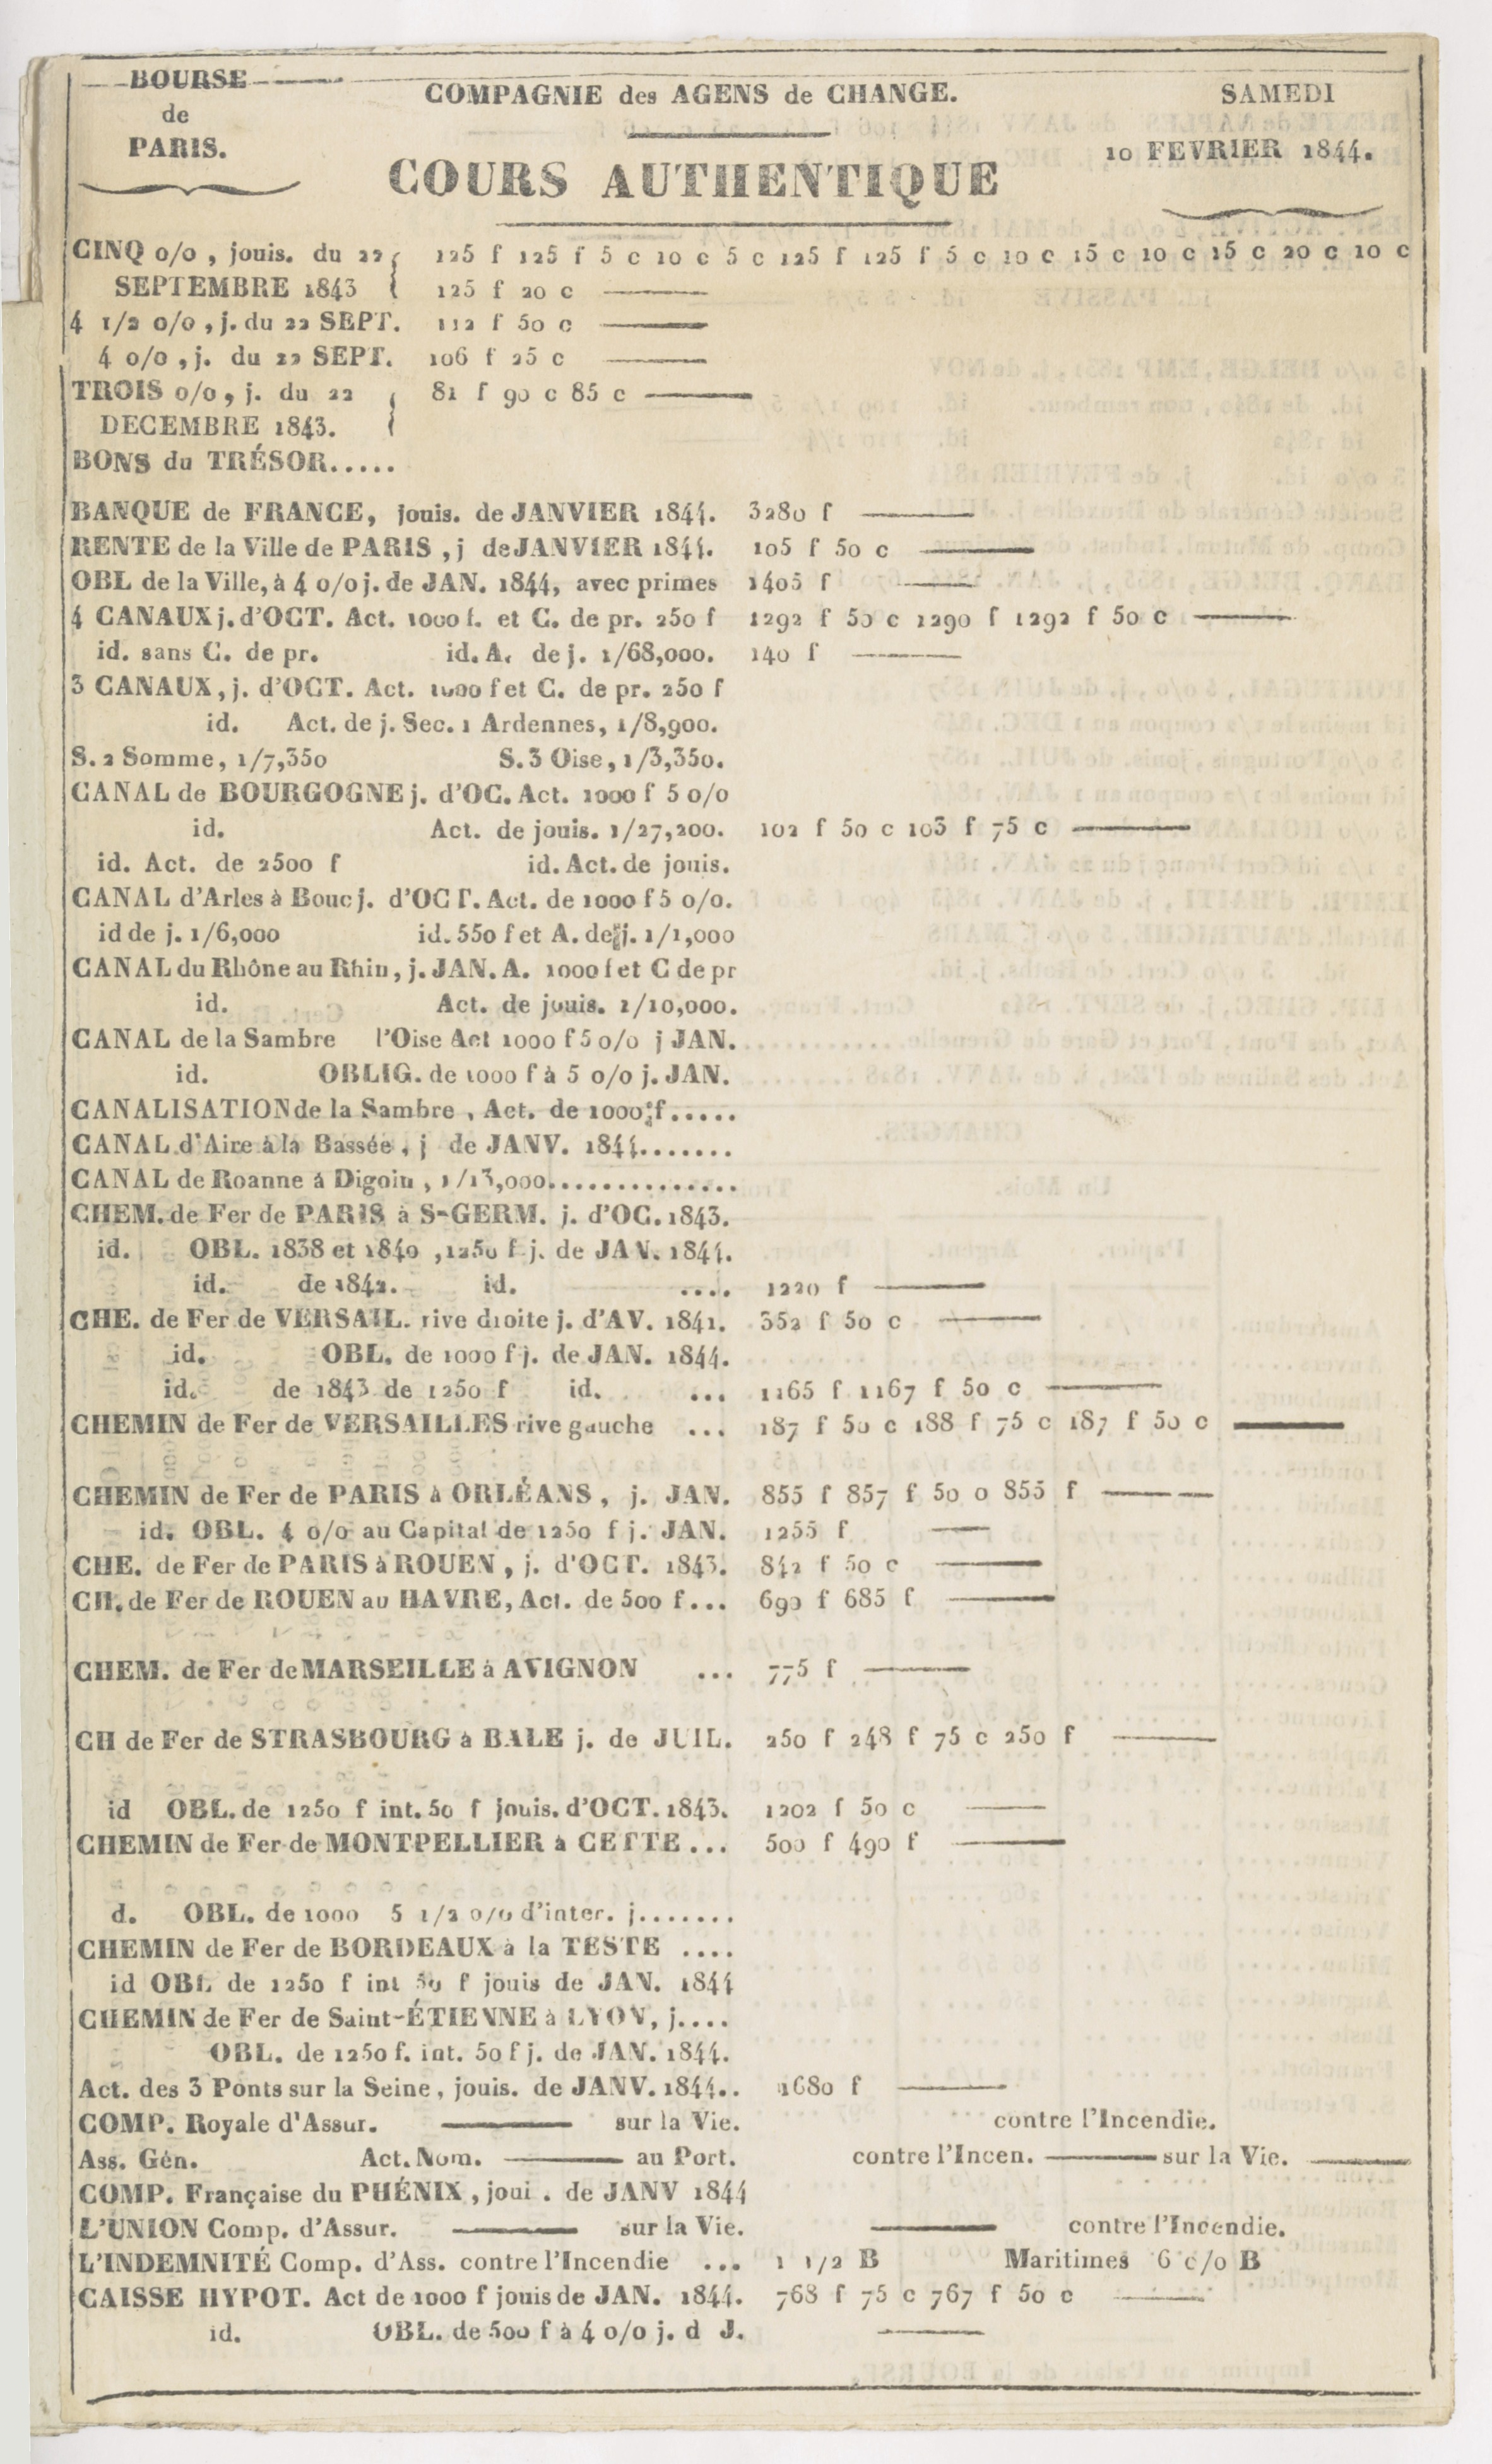 BOURSE
de
PARIS.
COMPAGNIE des AGENS de CHANGE.
COURS AUTHENTIQUE
SAMEDI
10 FEVRIER 1844.
CINQ o/o, jouis. du 22 125 f 125 f 5 c 10 c 5 c 125 f 125 f 5 c 10 c 15 c 10 c 15 c 20 c 10 c
SEPTEMBRE 1843 125 f 20 c
4 1/2 o/o, j. du 22 SEPT. 112 f 50 c
4 o/o, j. du 22 SEPT. 106 f 25 c
TROIS o/o, j. du 22 81 f 90 c 85 c
DECEMBRE 1843.
BONS du TRÉSOR.....
BANQUE de FRANCE, jouis. de JANVIER 1844. 3280 f
RENTE de la Ville de PARIS, j de JANVIER 1844. 105 f 50 c
OBL de la Ville, à 4 o/o j. de JAN. 1844, avec primes 1405 f
4 CANAUX j. d'OCT. Act. 1000 f. et C. de pr. 250 f 1292 f 50 c 1290 f 1292 f 50 c
id. sans C. de pr. id. A. de j. 1/68,000. 140 f
3 CANAUX, j. d'OCT. Act. 1000 f et C. de pr. 250 f
id. Act. de j. Sec. 1 Ardennes, 1/8,900.
S. 2 Somme, 1/7,350 S. 3 Oise, 1/3,350.
CANAL de BOURGOGNE j. d'OC. Act. 1000 f 5 o/o
id. Act. de jouis. 1/27,200. 102 f 50 c 103 f 75 c
id. Act. de 2500 f id. Act. de jouis.
CANAL d'Arles à Bouc j. d'OCT. Act. de 1000 f 5 o/o.
id de j. 1/6,000 id. 550 f et A. de j. 1/1,000
CANAL du Rhône au Rhin, j. JAN. A. 1000 f et C de pr
id. Act. de jouis. 1/10,000.
CANAL de la Sambre l'Oise Act 1000 f 5 o/o j JAN.
id. OBLIG. de 1000 f à 5 o/o j. JAN.
CANALISATION de la Sambre, Act. de 1000 f.....
CANAL d'Aire à la Bassée, j de JANV. 1844.......
CANAL de Roanne à Digoin, 1/13,000..............
CHEM. de Fer de PARIS à S-GERM. j. d'OC. 1843.
id. OBL. 1838 et 1840, 1250 f j. de JAN. 1844.
id. de 1842. id. .... 1220 f
CHE. de Fer de VERSAIL. rive droite j. d'AV. 1841. 352 f 50 c
id. OBL. de 1000 f j. de JAN. 1844.
id. de 1843 de 1250 f id. ... 1165 f 1167 f 50 c
CHEMIN de Fer de VERSAILLES rive gauche ... 187 f 50 c 188 f 75 c 187 f 50 c
CHEMIN de Fer de PARIS à ORLÉANS, j. JAN. 855 f 857 f 50 o 855 f
id. OBL. 4 o/o au Capital de 1250 f j. JAN. 1255 f
CHE. de Fer de PARIS à ROUEN, j. d'OCT. 1843. 842 f 50 c
CH. de Fer de ROUEN au HAVRE, Act. de 500 f... 690 f 685 f
CHEM. de Fer de MARSEILLE à AVIGNON ... 775 f
CH de Fer de STRASBOURG à BALE j. de JUIL. 250 f 248 f 75 c 250 f
id OBL. de 1250 f int. 50 f jouis. d'OCT. 1843. 1202 f 50 c
CHEMIN de Fer de MONTPELLIER à CETTE... 500 f 490 f
d. OBL. de 1000 5 1/2 o/o d'inter. j.......
CHEMIN de Fer de BORDEAUX à la TESTE ....
id OBL de 1250 f int 50 f jouis de JAN. 1844
CHEMIN de Fer de Saint-ÉTIENNE à LYON, j....
OBL. de 1250 f. int. 50 f j. de JAN. 1844.
Act. des 3 Ponts sur la Seine, jouis. de JANV. 1844.. 1680 f
COMP. Royale d'Assur. sur la Vie. contre l'Incendie.
Ass. Gén. Act. Nom. au Port. contre l'Incen. sur la Vie.
COMP. Française du PHÉNIX, joui . de JANV 1844
L'UNION Comp. d'Assur. sur la Vie. contre l'Incendie.
L'INDEMNITÉ Comp. d'Ass. contre l'Incendie ... 1 1/2 B Maritimes 6 c/o B
CAISSE HYPOT. Act de 1000 f jouis de JAN. 1844. 768 f 75 c 767 f 50 c
id. OBL. de 500 f à 4 o/o j. d J.